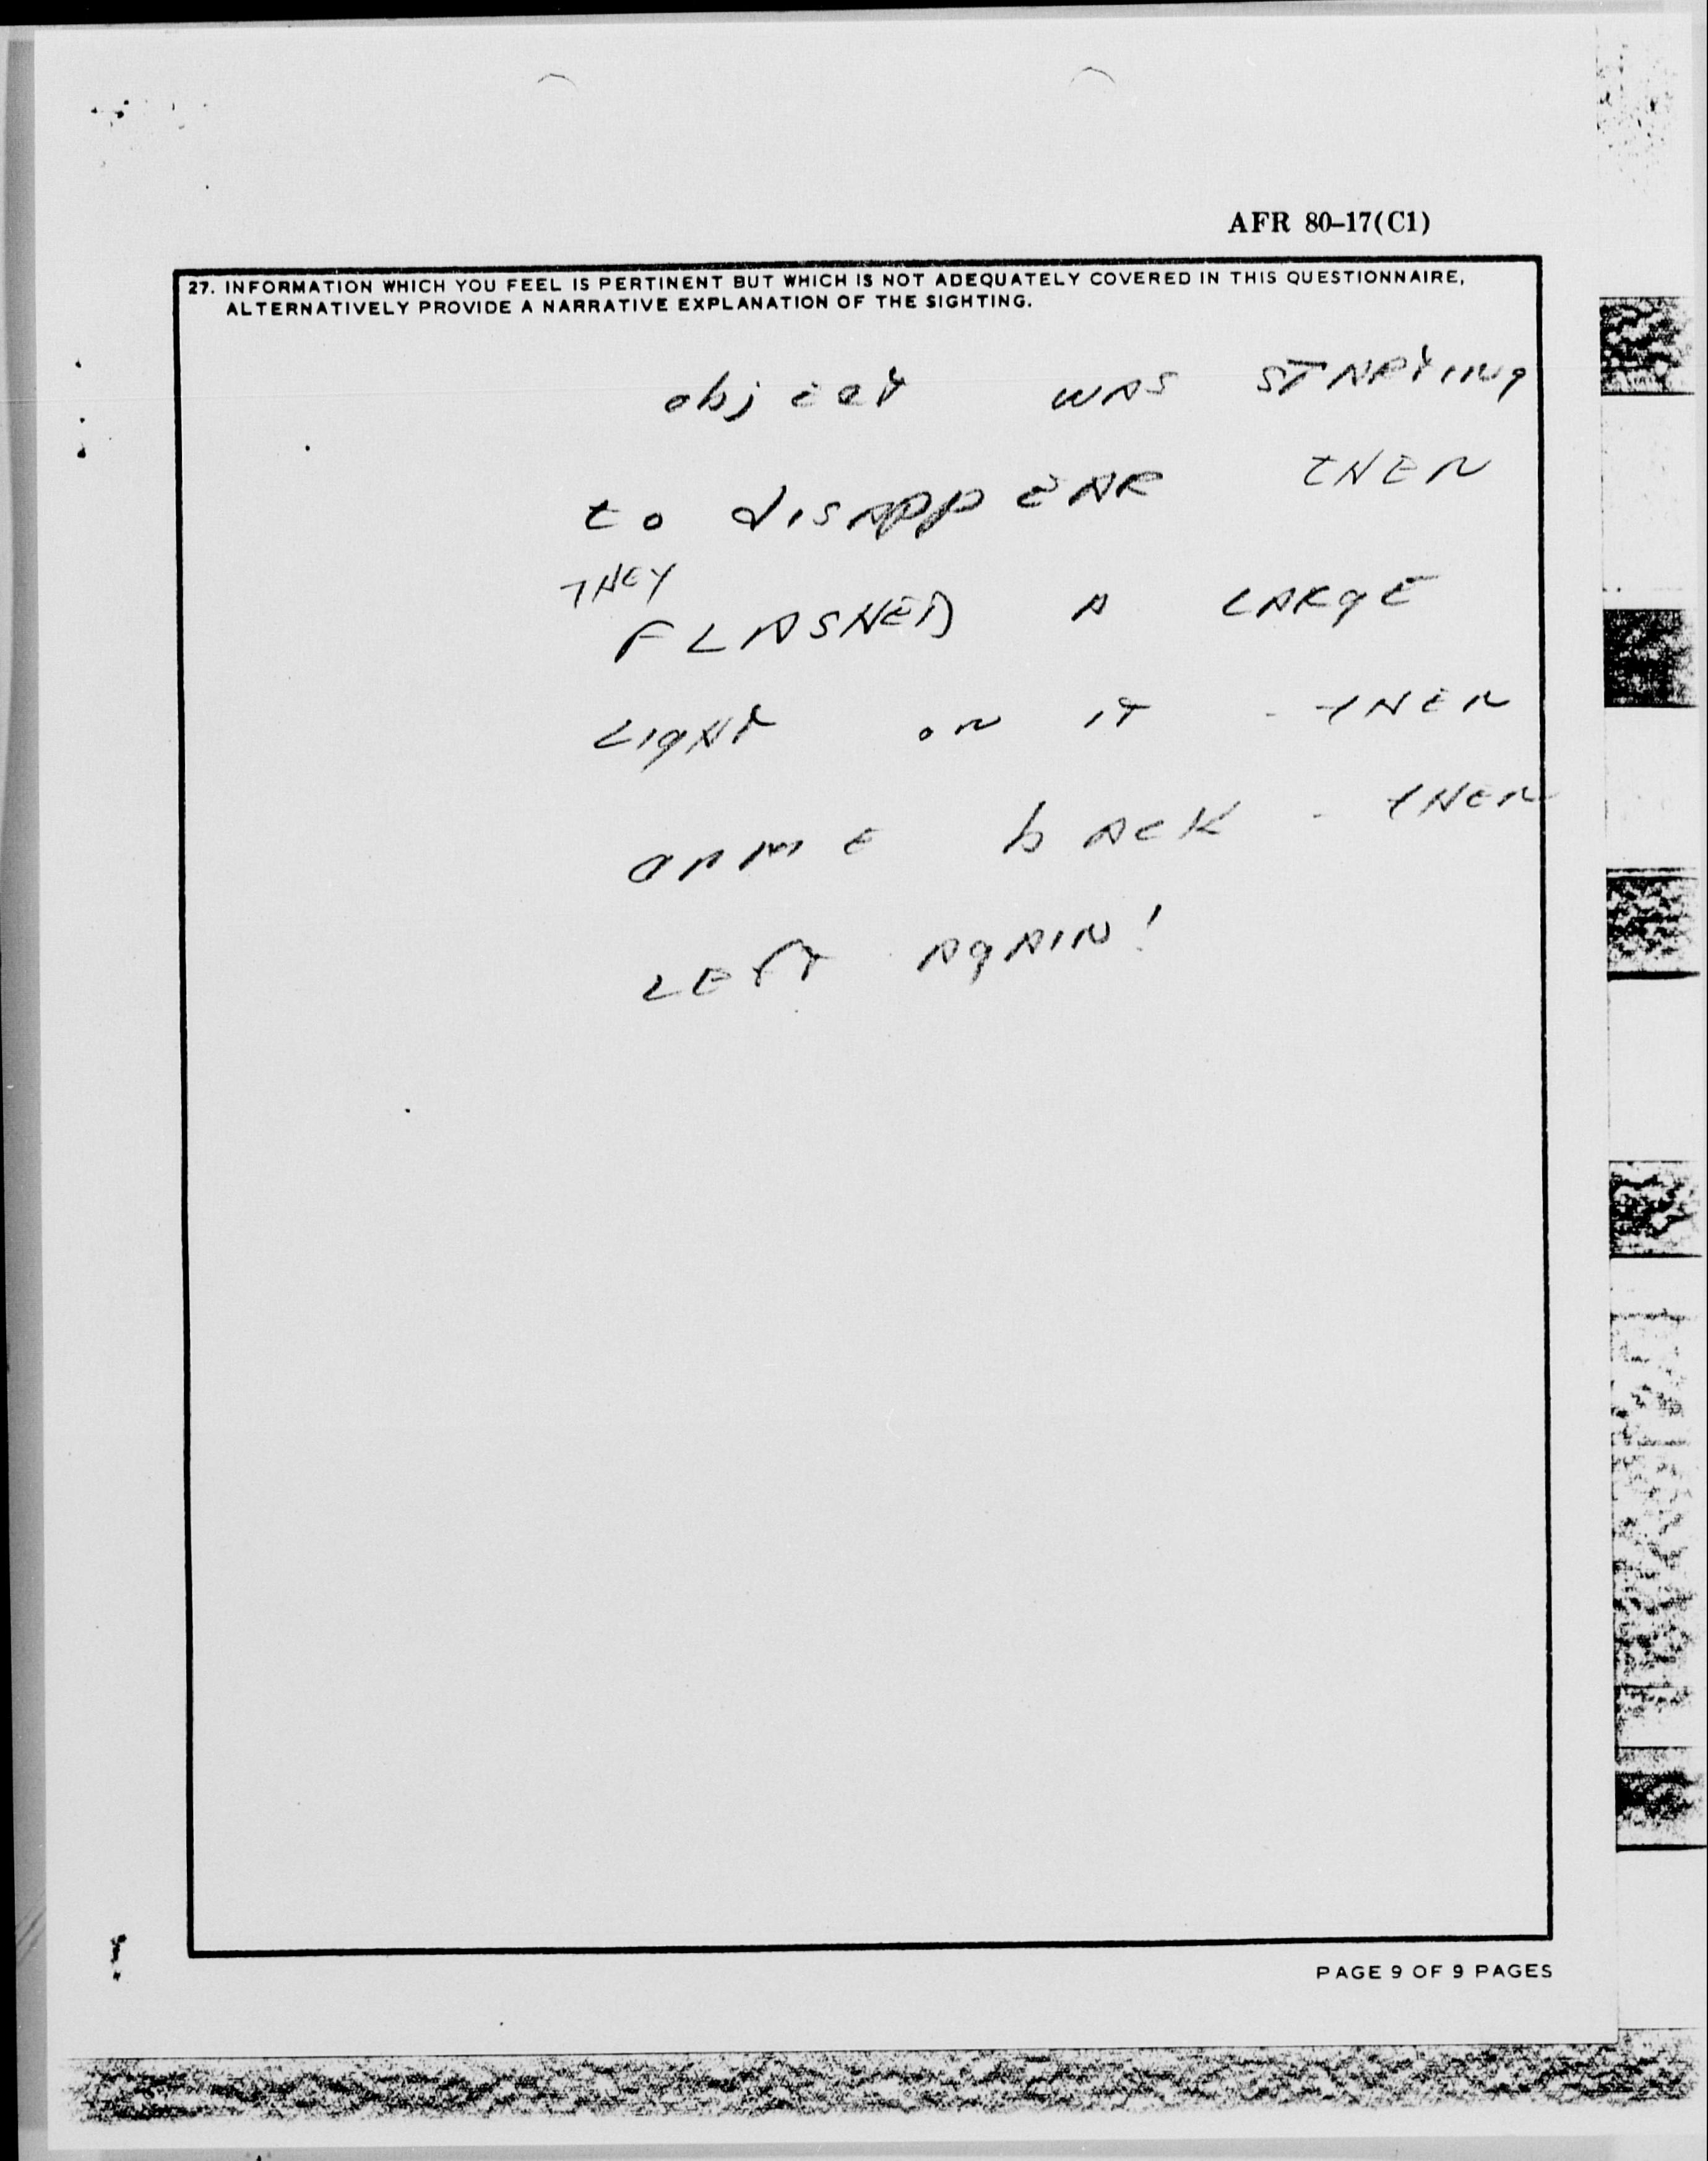 AFR 80–17(C1)
27. INFORMATION WHICH YOU FEEL IS PERTINENT BUT WHICH IS NOT ADEQUATELY COVERED IN THIS QUESTIONNAIRE,
ALTERNATIVELY PROVIDE A NARRATIVE EXPLANATION OF THE SIGHTING.
object WAS STARTING
to DISAPPEAR THEN
THEY
FLASHED A LARGE
LIGHT ON IT - THEN
CAME bACK - THEN
LEFT AGAIN!
PAGE 9 OF 9 PAGES